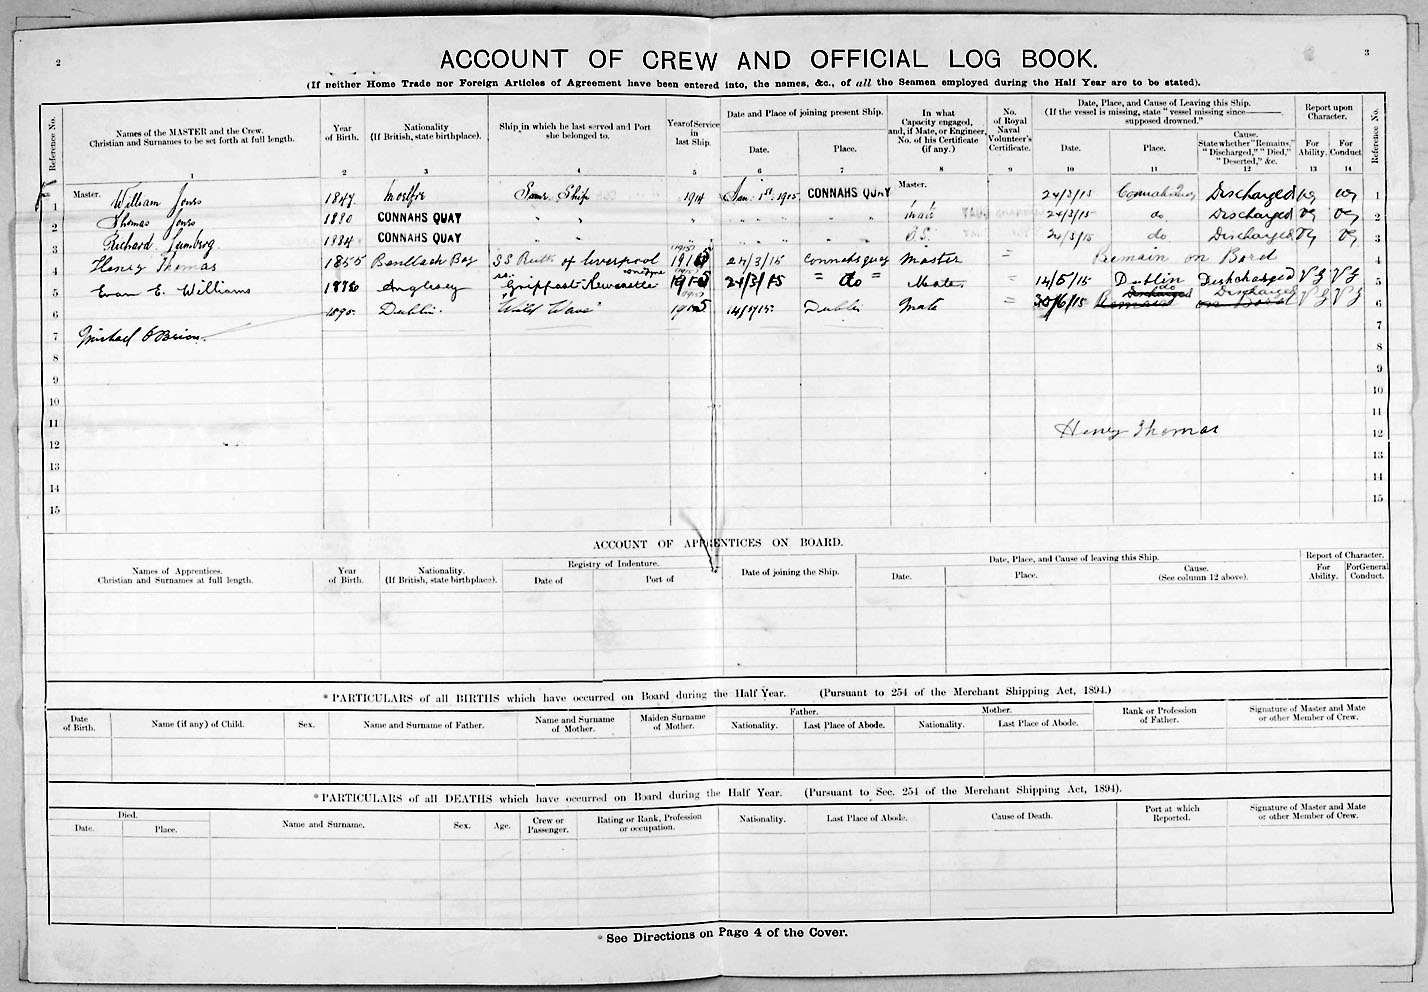 2
3
ACCOUNT OF CREW AND OFFICIAL LOG BOOK.
(If neither Home Trade nor Foreign Articles of Agreement have been entered into, the names, &c., of all the Seamen employed during the Half Year are to be stated).
Reference No. Names of the MASTER and the Crew. Christian and Surnames to be set forth at full length. Year of Birth. Nationality (If British, state birthplace). Ship in which he last served and Port she belonged to. Year of Service in last Ship. Date and Place of joining present Ship. Date. Place. In what Capacity engaged, and, if Mate, or Engineer, No. of his Certificate (if any.) No. of Royal Naval Volunteer's Certificate. Date, Place, and Cause of Leaving this Ship. (If the vessel is missing, state "vessel missing since———, supposed drowned.") Date. Place. Cause. State whether "Remains," "Discharged," "Died," "Deserted," &c. Report upon Character. For Ability. For Conduct Reference No.
1 2 3 4 5 6 7 8 9 10 11 12 13 14
1 Master. William Jones 1847 Same Ship 1914 Jan: 1st 1915 CONNAHS QUAY Master. 24/3/15 Discharged VG VG 1
2 Thomas Jones 1880 CONNAHS QUAY " " " " " " " Mate 24/3/15 do Discharged VG VG 2
3 Richard 1884 CONNAHS QUAY " " " " " " " O.S. 24/3/15 do Discharged VG VG 3
4 Henry Thomas 1855 SS Ruth of Liverpool 1915 24/3/15 Connahsquay Master = Remain on Bord 4
5 Evan E. Williams 1880 Anglesey SS. Newcastle 1915 24/3/15 " do " Mate. 14/5/15 Dublin Dishcharged VG VG 5
6 1890 Dublin. "Wild Wave" 1915 Dublin Mate = 30/6/15 do Discharged VG VG 6
7 Michael O'Brion. 7
8 8
9 9
10 10
11 11
12 Henry Thomas 12
13 13
14 14
15 15
ACCOUNT OF APPRENTICES ON BOARD.
Names of Apprentices. Christian and Surnames at full length. Year of Birth. Nationality. (If British, state birthplace). Registry of Indenture. Date of Port of Date of joining the Ship. Date, Place, and Cause of leaving this Ship. Date. Place. Cause. (See column 12 above). Report of Character. For Ability. For General Conduct.
*PARTICULARS of all BIRTHS which have occurred on Board during the Half Year. (Pursuant to 254 of the Merchant Shipping Act, 1894.)
Date of Birth. Name (if any) of Child. Sex. Name and Surname of Father. Name and Surname of Mother. Maiden Surname of Mother. Father. Nationality. Last Place of Abode. Mother. Nationality. Last Place of Abode. Rank or Profession of Father. Signature of Master and Mate or other Member of Crew.
*PARTICULARS of all DEATHS which have occurred on Board during the Half Year. (Pursuant to Sec. 254 of the Merchant Shipping Act, 1894).
Died. Date. Place. Name and Surname. Sex. Age. Crew or Passenger. Rating or Rank, Profession or occupation. Nationality. Last Place of Abode. Cause of Death. Port at which Reported. Signature of Master and Mate or other Member of Crew.
*See Directions on Page 4 of the Cover.